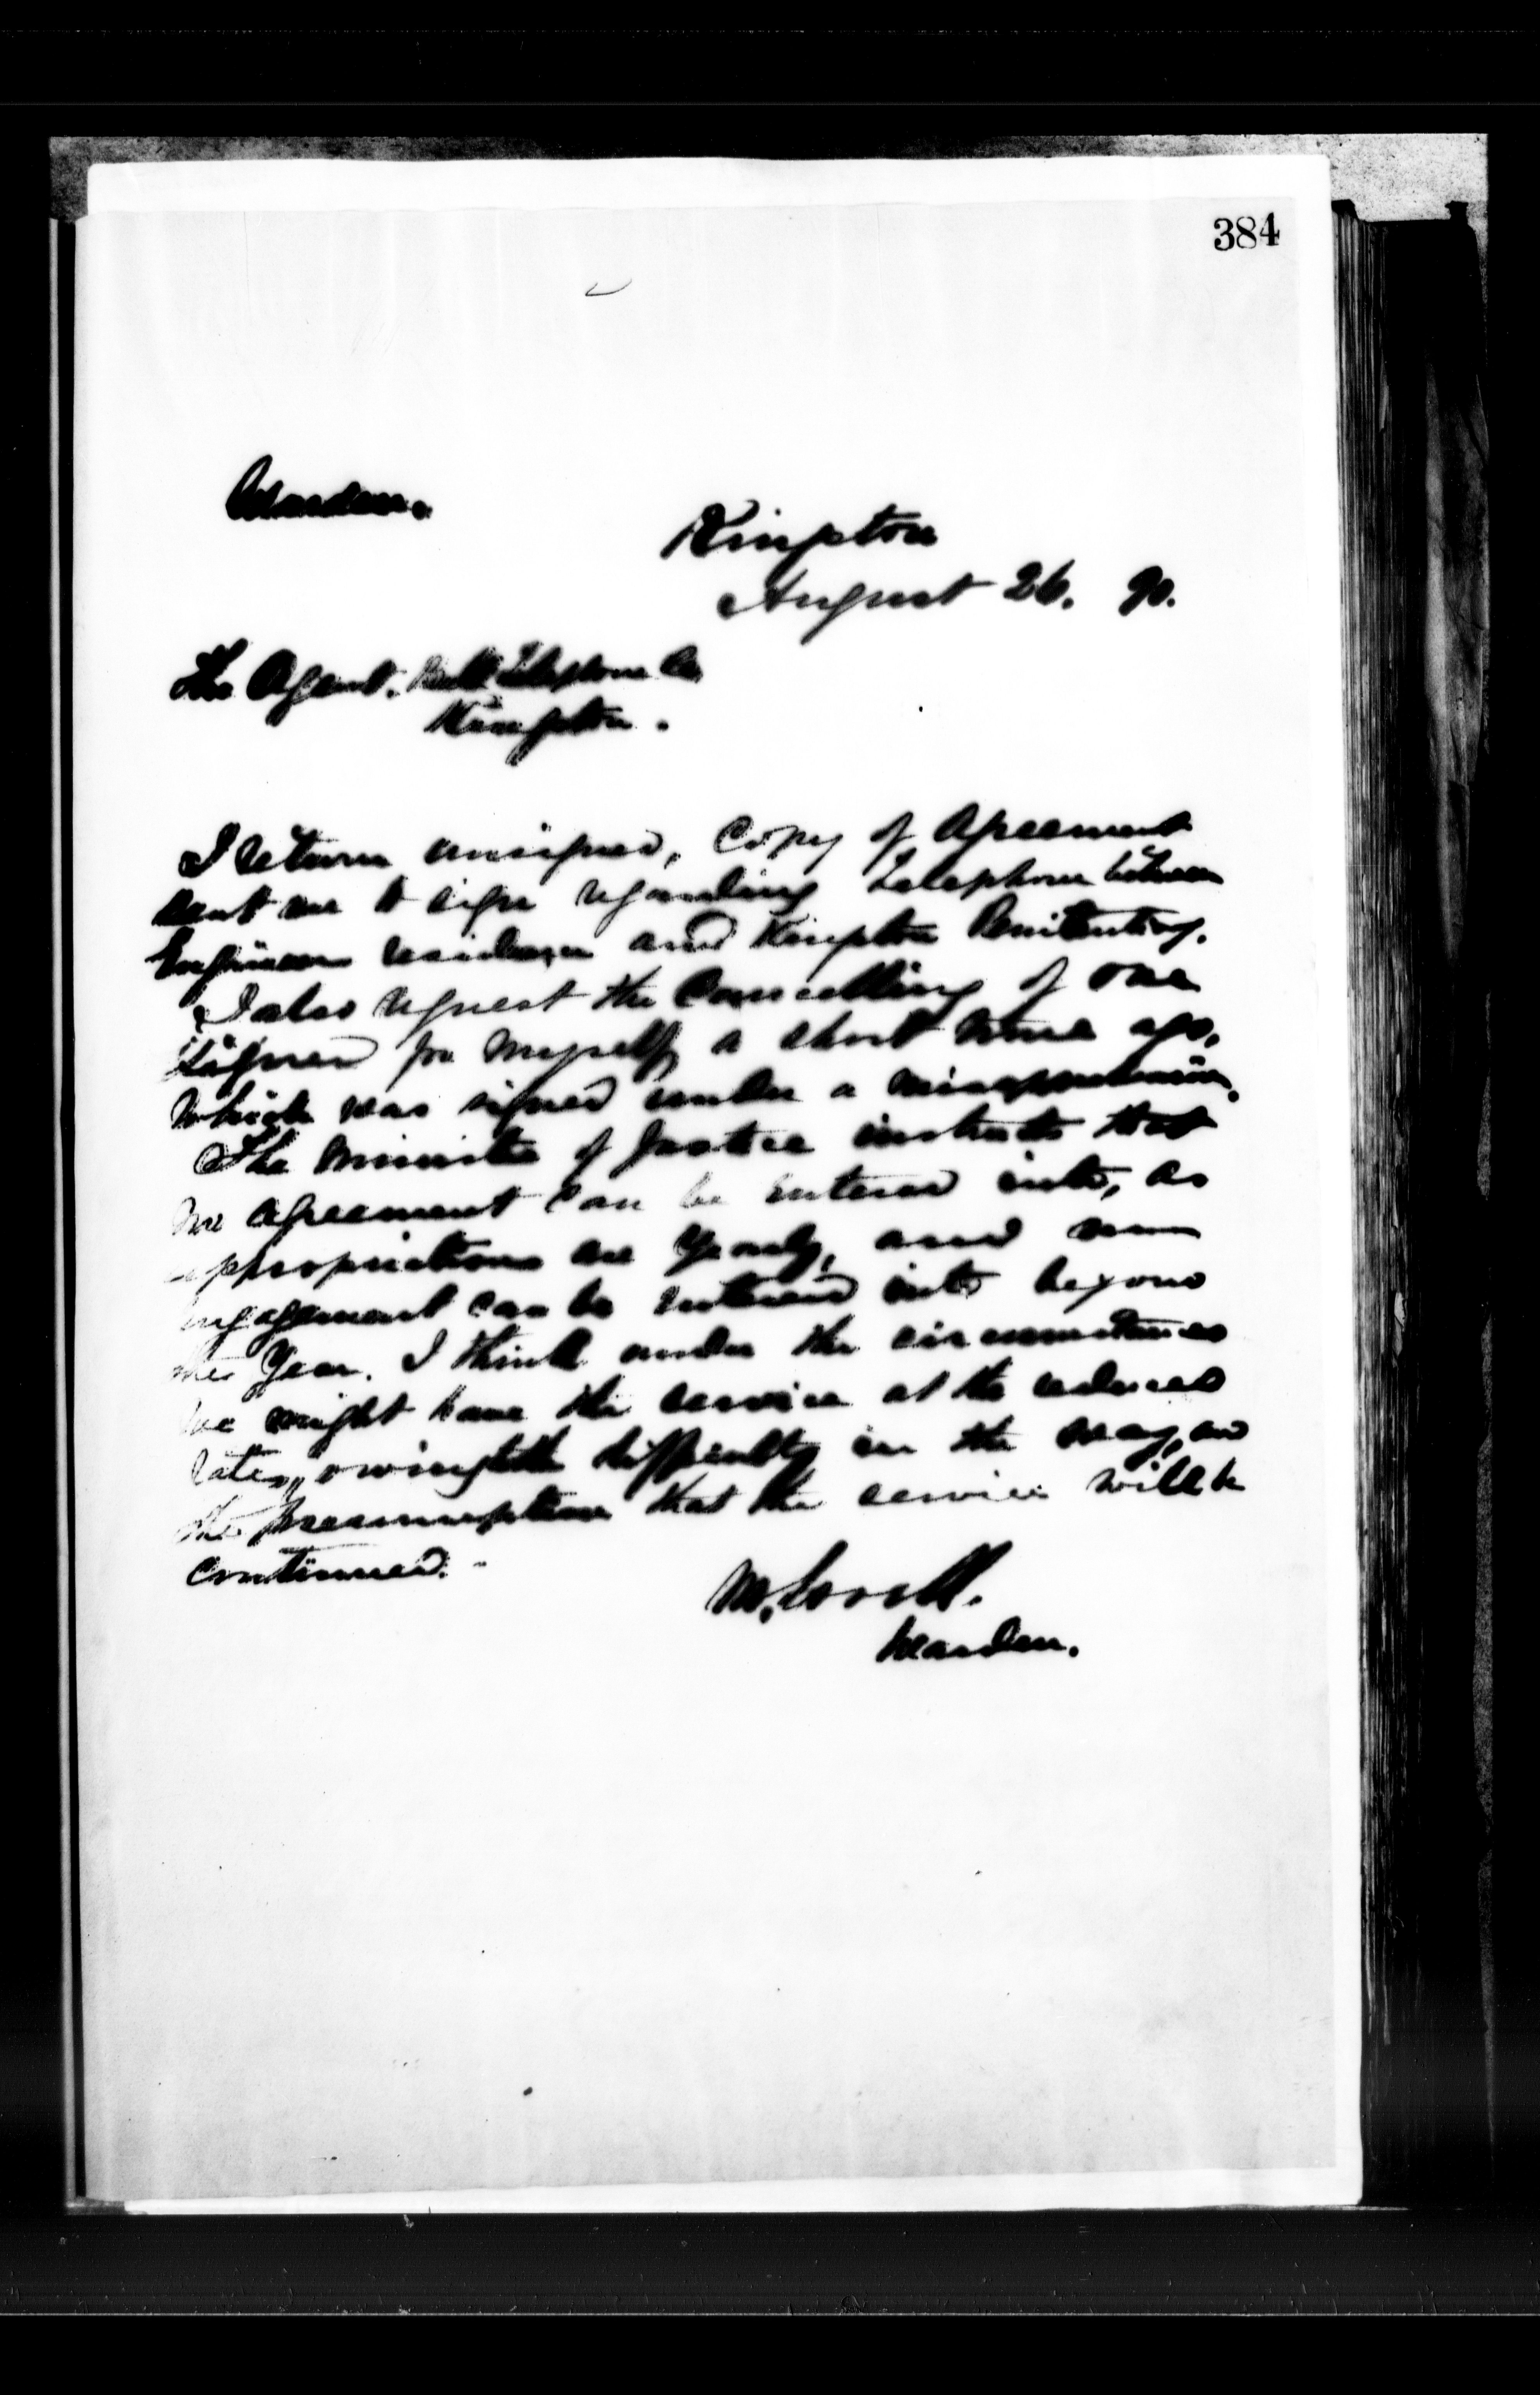 384
Warden.
Kingston
August 26. 90.
The Agent. Bell Telephone Co
Kingston.
I return unsigned, Copy of Agreement
sent me to sign regarding Telephone between
Engineers residence and Kingston Penitentiary.
I also request the Cancelling of one
signed for myself a short time ago,
which was signed under a misapprehension.
The Minister of Justice instructs that
no agreement can be entered into, as
appropriations are Yearly, and no
engagement can be entered into beyond
the Year. I think under the circumstances
we might have the service at the reduced
rates, owing to the difficulty in the way, and
the presumption that the service will be
continued.
M. Lavell.
Warden.